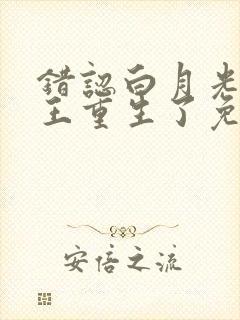 錯認白月光
王重生了免
安信之流